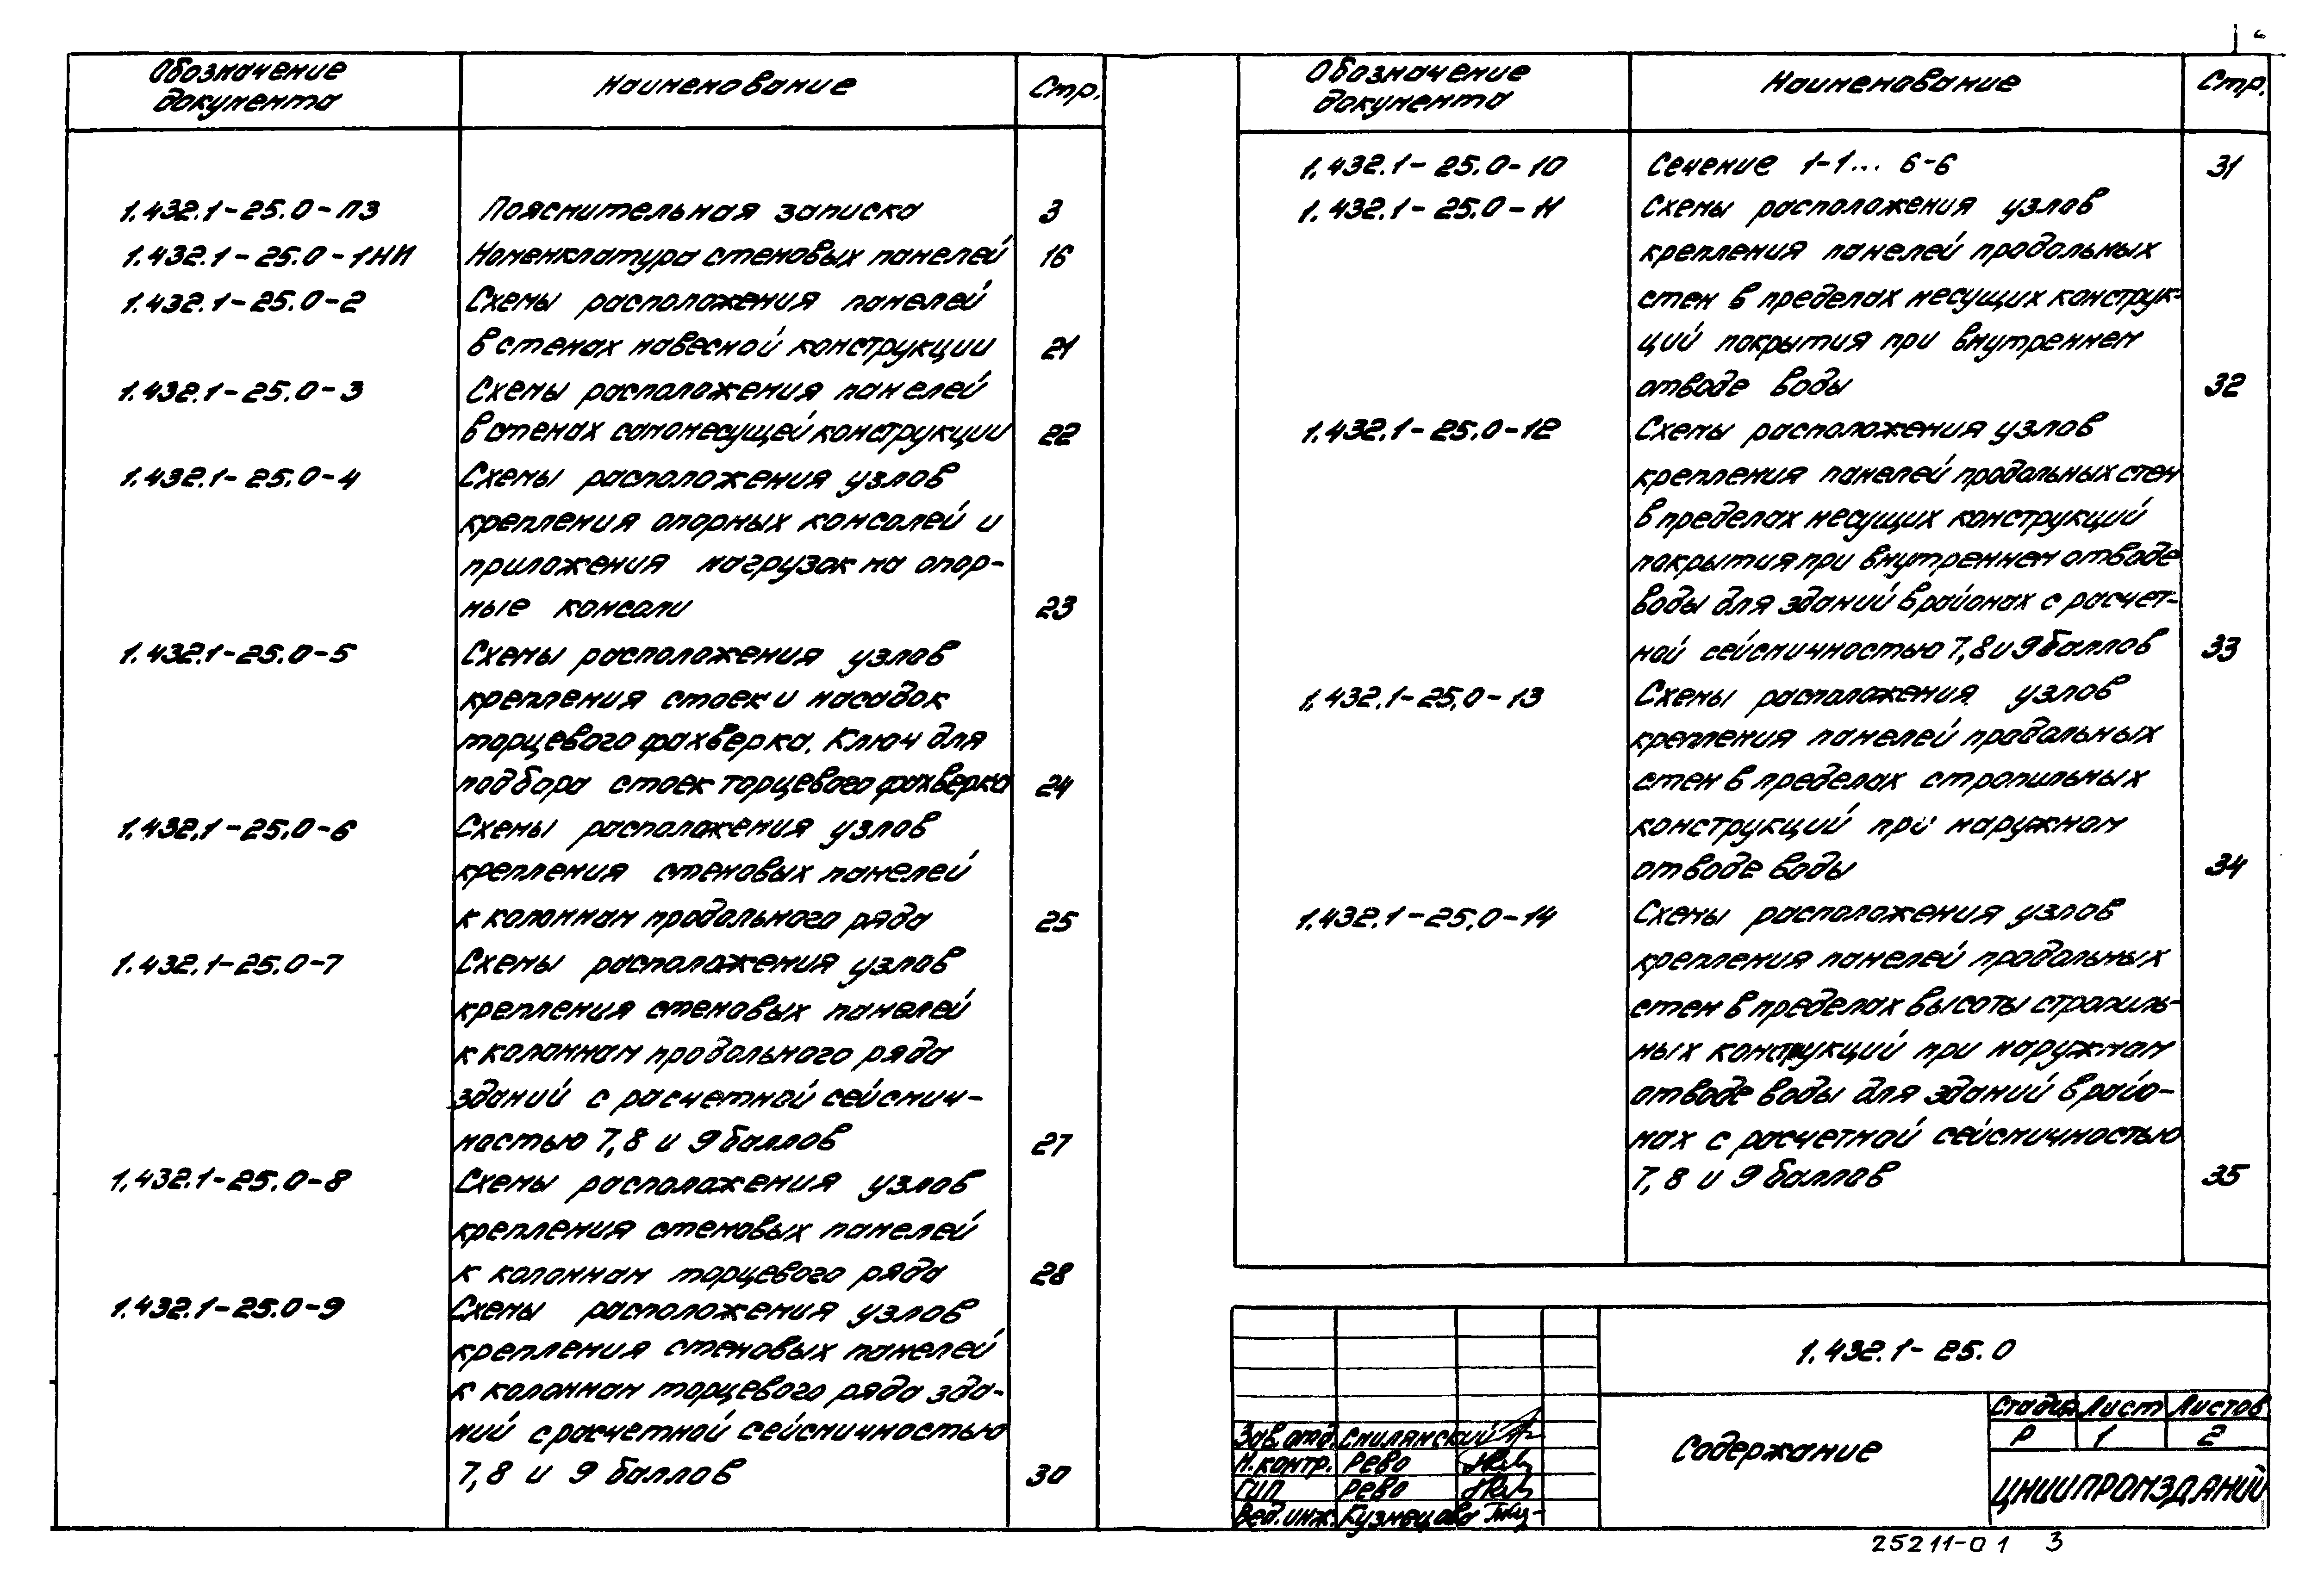 Обозначение документа Наименование Стр.
1.432.1-25.0-ПЗ Пояснительная записка 3
1.432.1-25.0-1НИ Номенклатура стеновых панелей 16
1.432.1-25.0-2 Схемы расположения панелей
в стенах навесной конструкции 21
1.432.1-25.0-3 Схемы расположения панелей
в стенах самонесущей конструкции 22
1.432.1-25.0-4 Схемы расположения узлов
крепления опорных консолей и
приложения нагрузок на опор-
ные консоли 23
1.432.1-25.0-5 Схемы расположения узлов
крепления стоек и насадок
торцевого фахверка. Ключ для
подбора стоек торцевого фахверка 24
1.432.1-25.0-6 Схемы расположения узлов
крепления стеновых панелей
к колоннам продольного ряда 25
1.432.1-25.0-7 Схемы расположения узлов
крепления стеновых панелей
к колоннам продольного ряда
зданий с расчетной сейсмич-
ностью 7,8 и 9 баллов 27
1.432.1-25.0-8 Схемы расположения узлов
крепления стеновых панелей
к колоннам торцевого ряда 28
1.432.1-25.0-9 Схемы расположения узлов
крепления стеновых панелей
к колоннам торцевого ряда зда-
ний с расчетной сейсмичностью
7,8 и 9 баллов 30
Обозначение документа Наименование Стр.
1.432.1-25.0-10 Сечение 1-1... 6-6 31
1.432.1-25.0-11 Схемы расположения узлов
крепления панелей продольных
стен в пределах несущих конструк-
ций покрытия при внутреннем
отводе воды 32
1.432.1-25.0-12 Схемы расположения узлов
крепления панелей продольных стен
в пределах несущих конструкций
покрытия при внутреннем отводе
воды для зданий в районах с расчет-
ной сейсмичностью 7,8 и 9 баллов 33
1.432.1-25.0-13 Схемы расположения узлов
крепления панелей продольных
стен в пределах стропильных
конструкций при наружном
отводе воды 34
1.432.1-25.0-14 Схемы расположения узлов
крепления панелей продольных
стен в пределах высоты стропиль-
ных конструкций при наружном
отводе воды для зданий в райо-
нах с расчетной сейсмичностью
7,8 и 9 баллов 35
1.432.1-25.0
Зав. отд. Смилянский
Н. контр. Рево
ГИП Рево
Вед. инж. Кузнецова
Содержание
Стадия Лист Листов
Р 1 2
ЦНИИПРОМЗДАНИЙ
25211-01 3